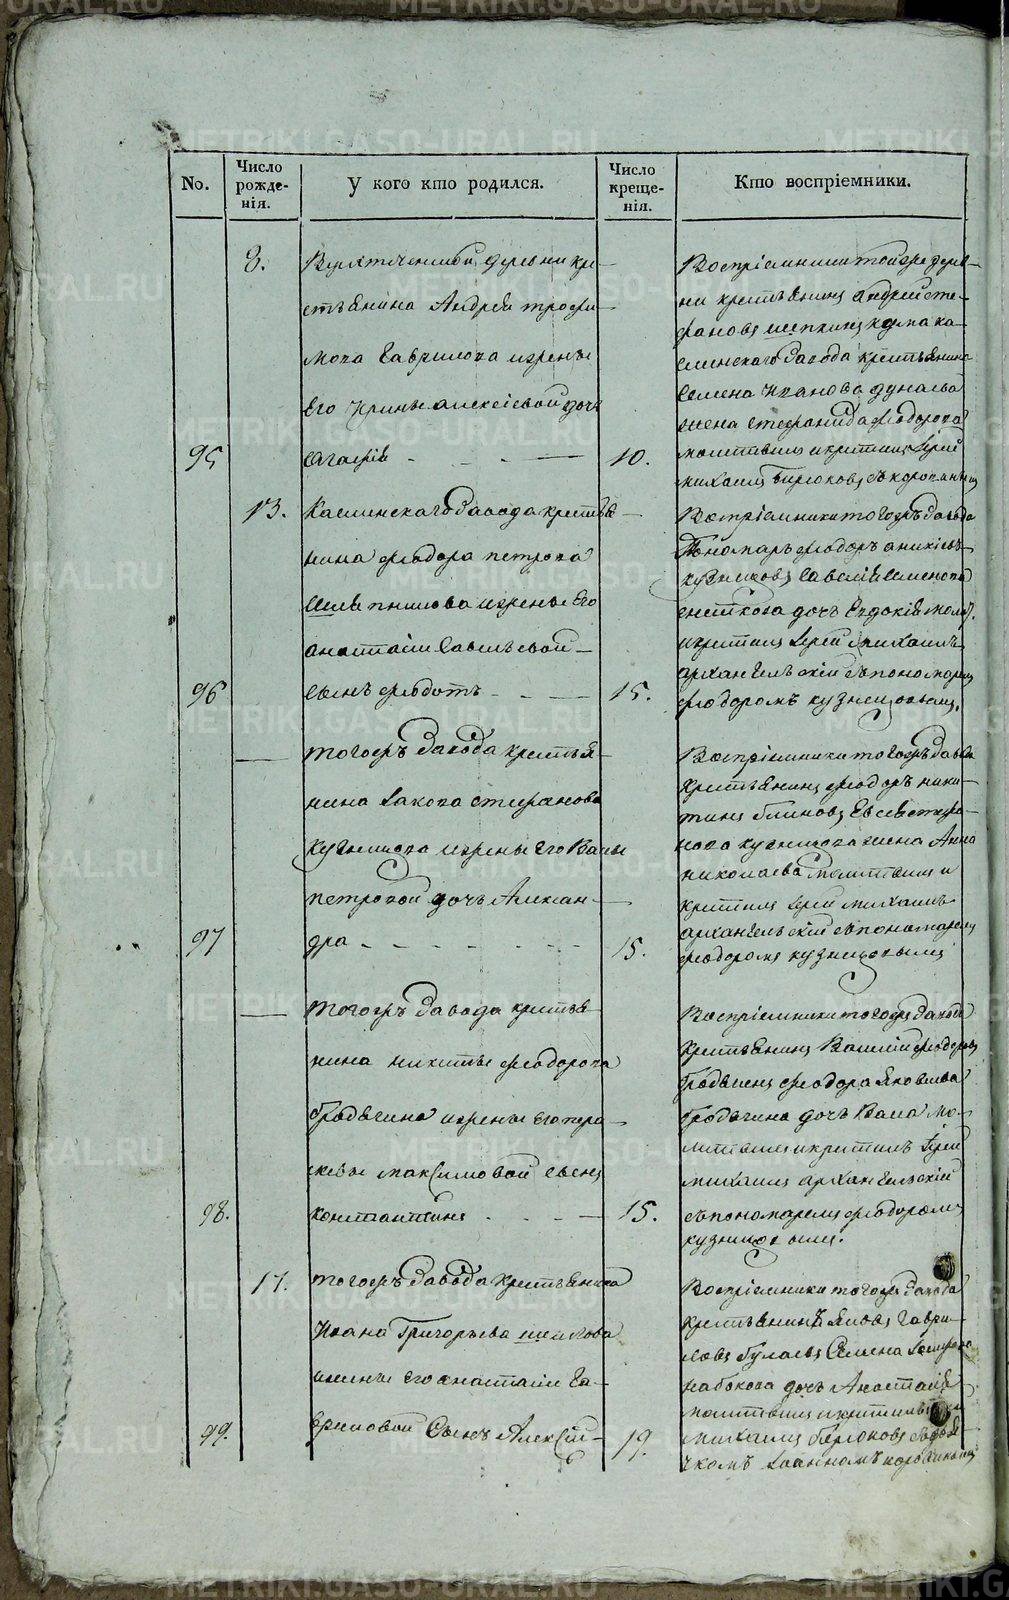 No.
Число рожде-
нія.
У кого кто родился.
Число креще-
нія.
Кто воспріемники.
8.
деревни кре-
стьянина Андрея трофи-
мова Гаврилова изжены
Его Ирины алексіевой дочь
95
Агафія
10.
Воспріемники тойже дерев-
ни крестьянинъ андрей сте-
фановъ кума ка-
слинскаго завода крестьянина
семена Иванова дунаева
жена стефанида феодорова
молитвилъ икрестилъ Іерей
михаилъ Бирюковъ
13.
Каслинскаго завода крестья-
нина феодора петрова
изжены Его
анастасіи Савельевой
96
сынъ феодотъ
15.
Воспріемники тогожъ завода
Пономарь феодоръ
кузнецовъ Савелія семенова
дочь Евдокія молит.
икрестилъ Іерей михаилъ
архангельскій съпономаремъ
феодоромъ кузнецовымъ.
тогожъ завода крестья-
нина Іакова стефанова
кузнецова изжены Его Васы
петровой дочь Алексан-
97
дра
15.
Воспріемники тогожъ завода
крестьянинъ феодоръ ники-
тинъ блиновъ Евсея стефа-
нова кузнецова жена Анна
николаева молитвилъ и
крестилъ Іерей михаилъ
архангельскій съпономаремъ
феодоромъ кузнецовымъ
тогожъ завода крестья-
нина никиты феодорова
изжены Его пара-
скевы максимовой сынъ
98.
константинъ
15.
Воспріемники тогожъ завода
крестьянинъ Василій феодоровъ
феодора Яковлева
дочь Васа мо-
литвилъ икрестилъ Іерей
михаилъ архангельскій
съпономаремъ феодоромъ
кузнецовымъ.
17.
тогожъ завода крестьянина
Ивана Григорьева
изжены Его анастасіи Га-
99.
вриловой Сынъ Алексій
19.
Воспріемники тогожъ завода
крестьянинъ Яковъ Гаври-
ловъ булаевъ Семена
набокова дочь Анастасія
молитвилъ икрестилъ
михаилъ бирюковъ съдья-
чкомъ Іоанномъ
METRIKI.GASO-URAL.RU